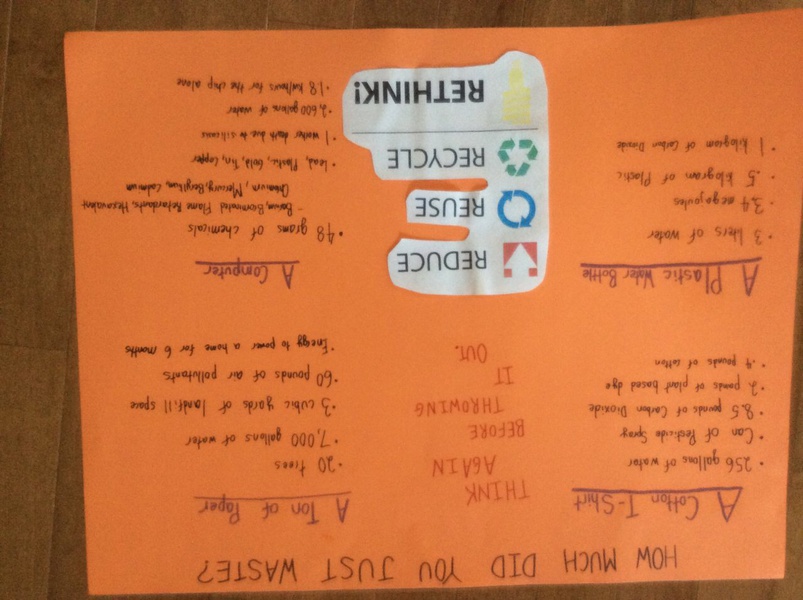 HOW MUCH DID YOU JUST WASTE?
A Cotton T-Shirt
• 256 gallons of water
• Can of Pesticide Spray
• 8.5 pounds of Carbon Dioxide
• 2 pounds of plant based dye
• .4 pounds of cotton
THINK
AGAIN
BEFORE
THROWING
IT
OUT.
A Ton of Paper
• 20 trees
• 7,000 gallons of water
• 3 cubic yards of landfill space
• 60 pounds of air pollutants
• Energy to power a home for 6 months
A Plastic Water Bottle
• 3 liters of water
• 3.4 megajoules
• .5 kilogram of Plastic
• 1 kilogram of Carbon Dioxide
REDUCE
REUSE
RECYCLE
RETHINK!
A Computer
• 48 grams of chemicals
- Barium, Brominated Flame Retardants, Hexavalent
Chromium, Mercury, Beryllium, Cadmium
• Lead, Plastic, Gold, Tin, Copper
• 1 worker death due to silicosis
• 2,600 gallons of water
• 18 kw/hours for the chip alone